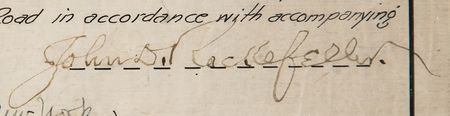 Road in accordance with accompanying
John D. Rockefeller